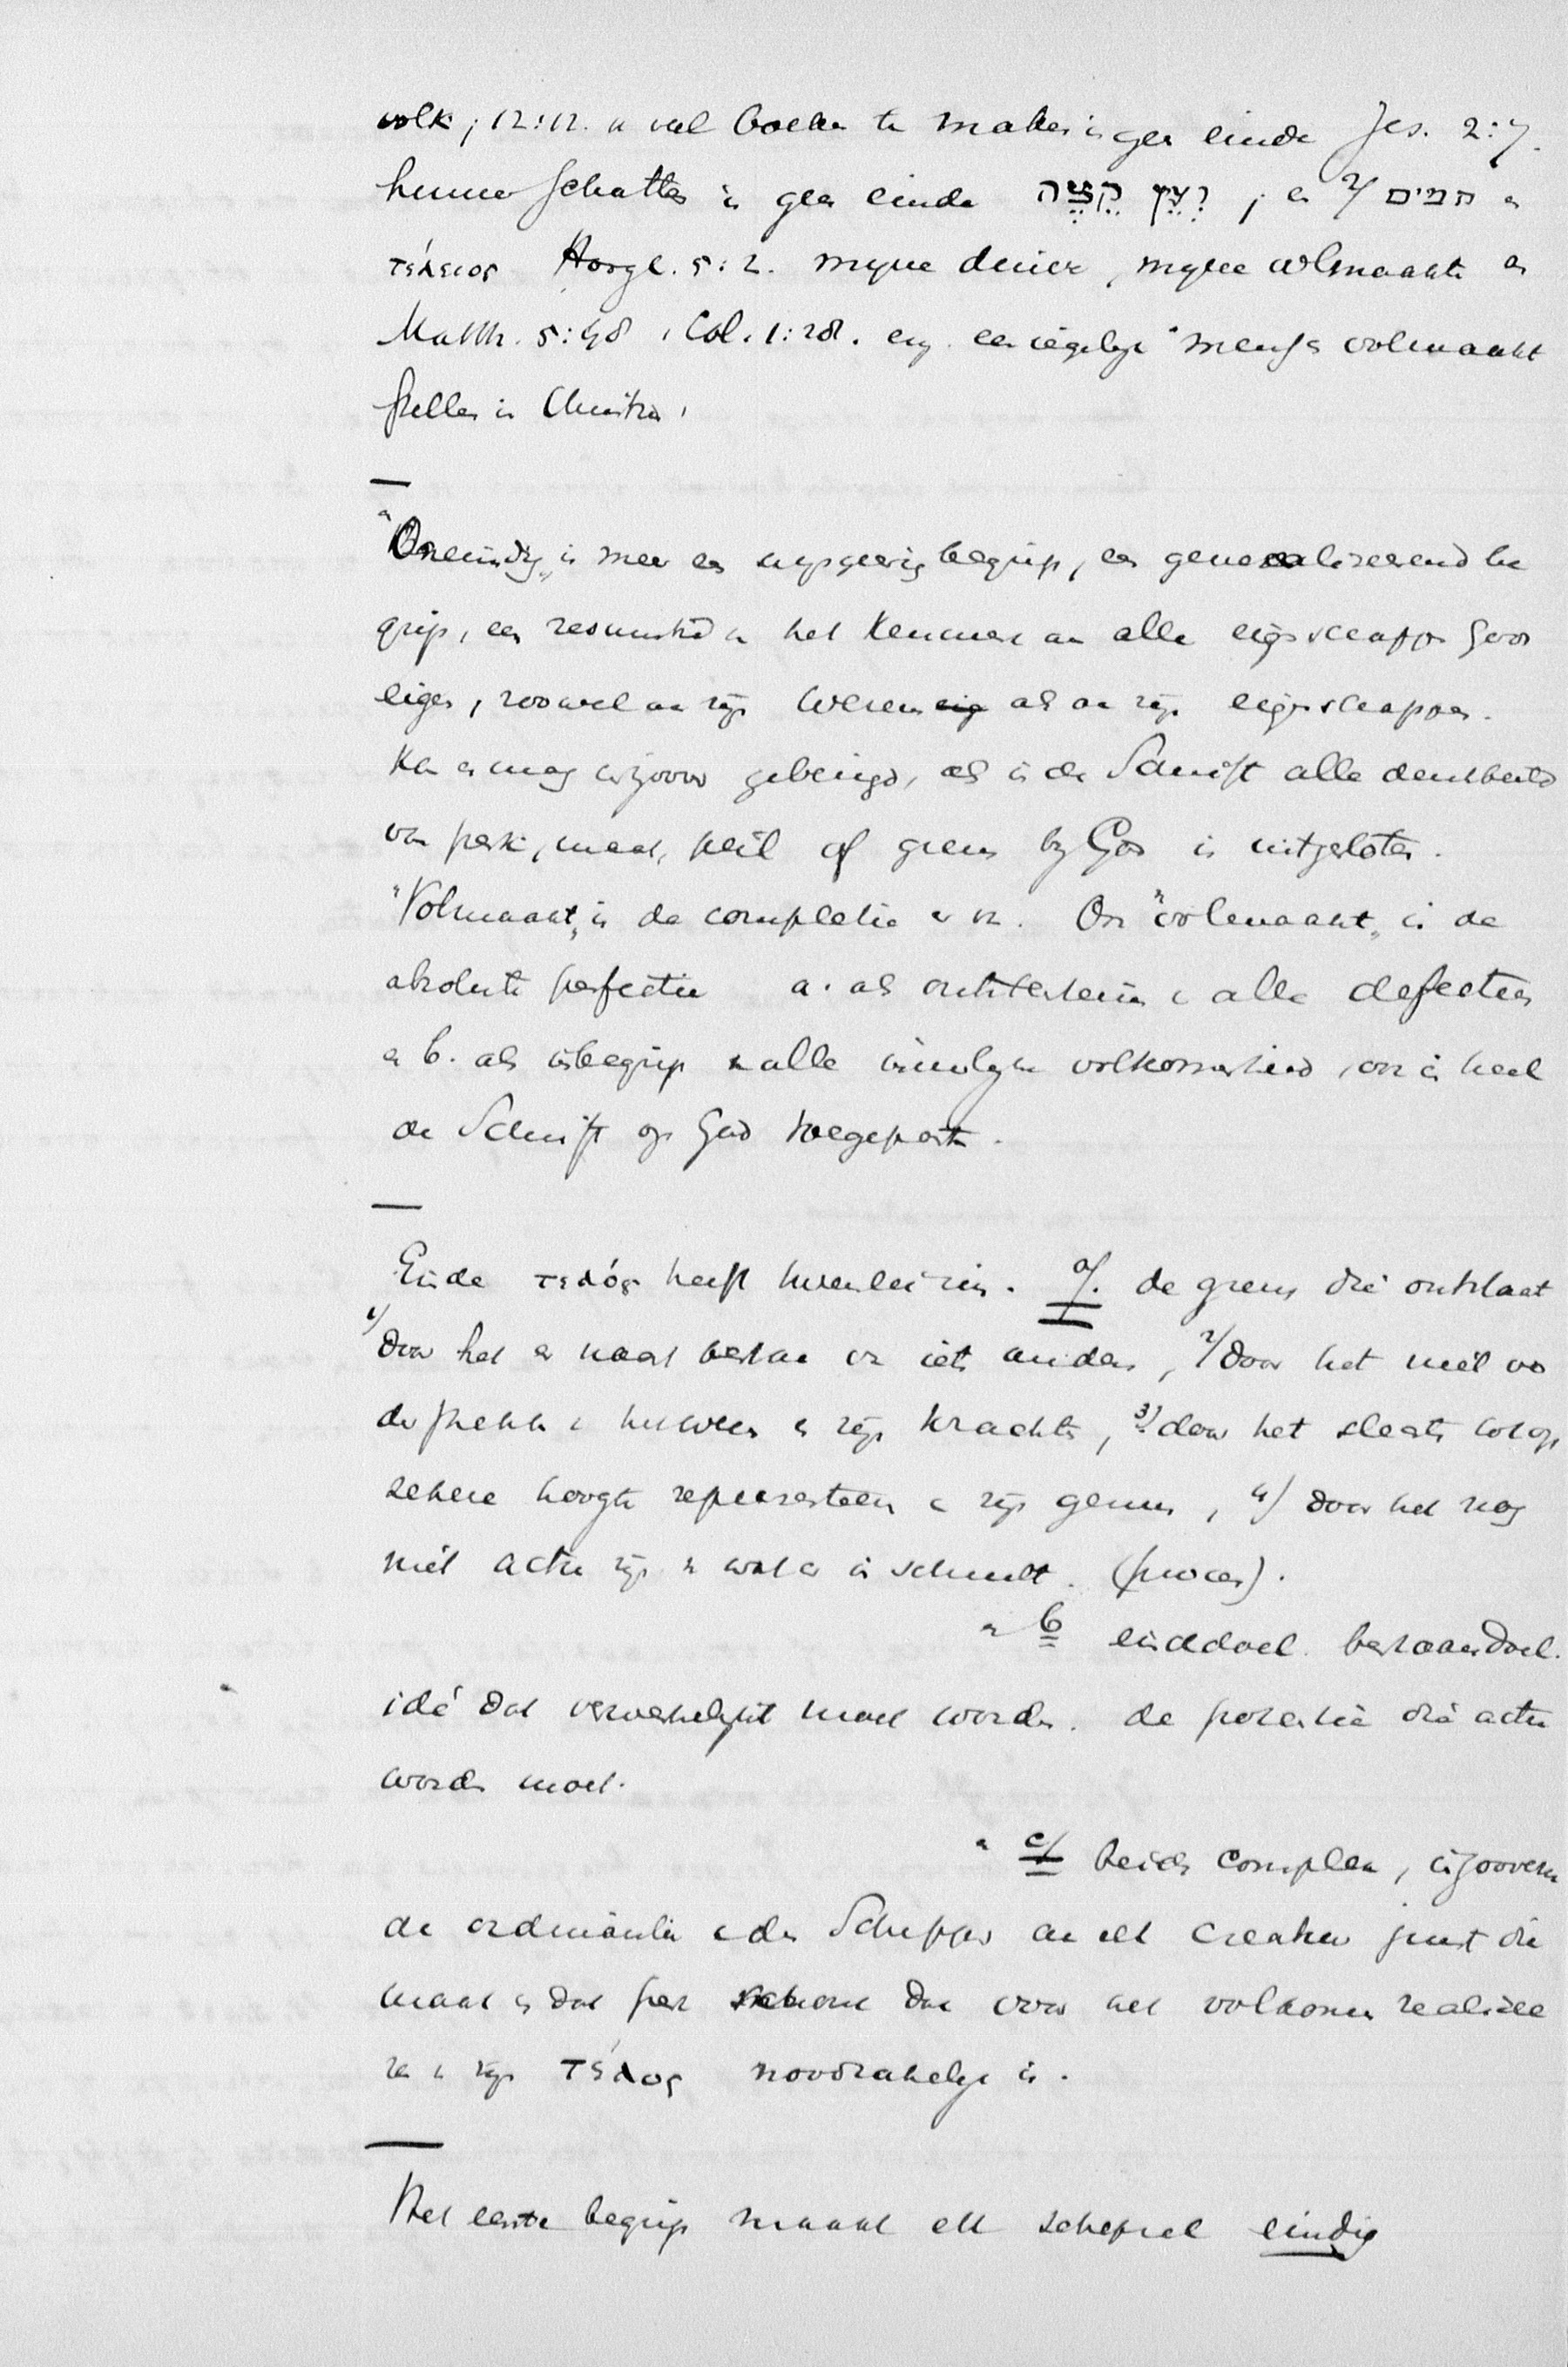 volk; 12:12. v veel boeken te maken is geen einde Jes. 2:7.
hunner schatten is geen einde קֵץ קָצֶה ; en 2/ תמים en
τέλειος Hoogl. 5:2. mijne duive, mijne volmaakte en
Matth. 5:48, Col. 1:28. een iegelijk mensch volmaakt
stellen in Christus,
"Oneindig„ is meer een begrip, een generaliseerend be
grip, een v het kenmerk aan alle eigenschappen Gods
eigen, zoowel aan zijn Wezen als aan zijn eigenschappen.
Kan en mag gebezigd, als in de Schrift alle denkbeeld
van perk, maat, peil of grens bij God is uitgesloten.
"Volmaakt„ is de completie er van. Ons "volmaakt„ is de
absolute perfectie a. als ontstentenis v alle defecten
en b. als inbegrip v alle volkomenheid, en is heel
de Schrift op God toegepast.
Einde τελός heeft tweeërlei zin. a/. de grens die ontstaat
1/ door het er naast bestaan van iets anders, 2/ door het niet vol
de strekken v het wezen en zijn krachten, 3/ door het slechts tot op
zekere hoogte representeeren v zijn genus, 4/ door het nog
niet actu zijn v wat er in schuilt. (proces).
" b einddoel. bestaansdoel.
idé dat verwerkelijkt moet worden. de potentie die actu
worden moet.
" c/ beide complex, in zooverre
de ordinantie v den Schepper aan elk creatuur juist die
maat en dat perk schonk dat voor het volkomen realisee
ren v zijn τέλος noodzakelijk is.
Het eerste begrip maakt elk schepsel eindig